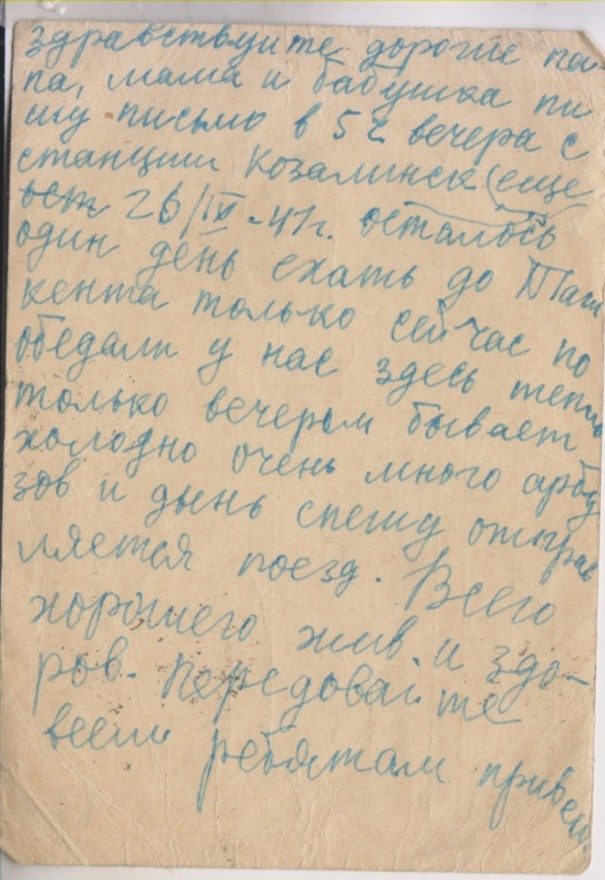 здравствуите дорогие па
па, мама и бабушка пи
шу письмо в 5 ч вечера с
станции Козалинск (еще
26/IX-41г. осталось
один день ехать до Таш
кента только сейчас по
обедали у нас здесь тепло
только вечером бывает
холодно очень много арбу
зов и дынь спешу отправ
ляется поезд. Всего
хорошего жив и здо-
ров. Передовайте
всем ребятам привет.